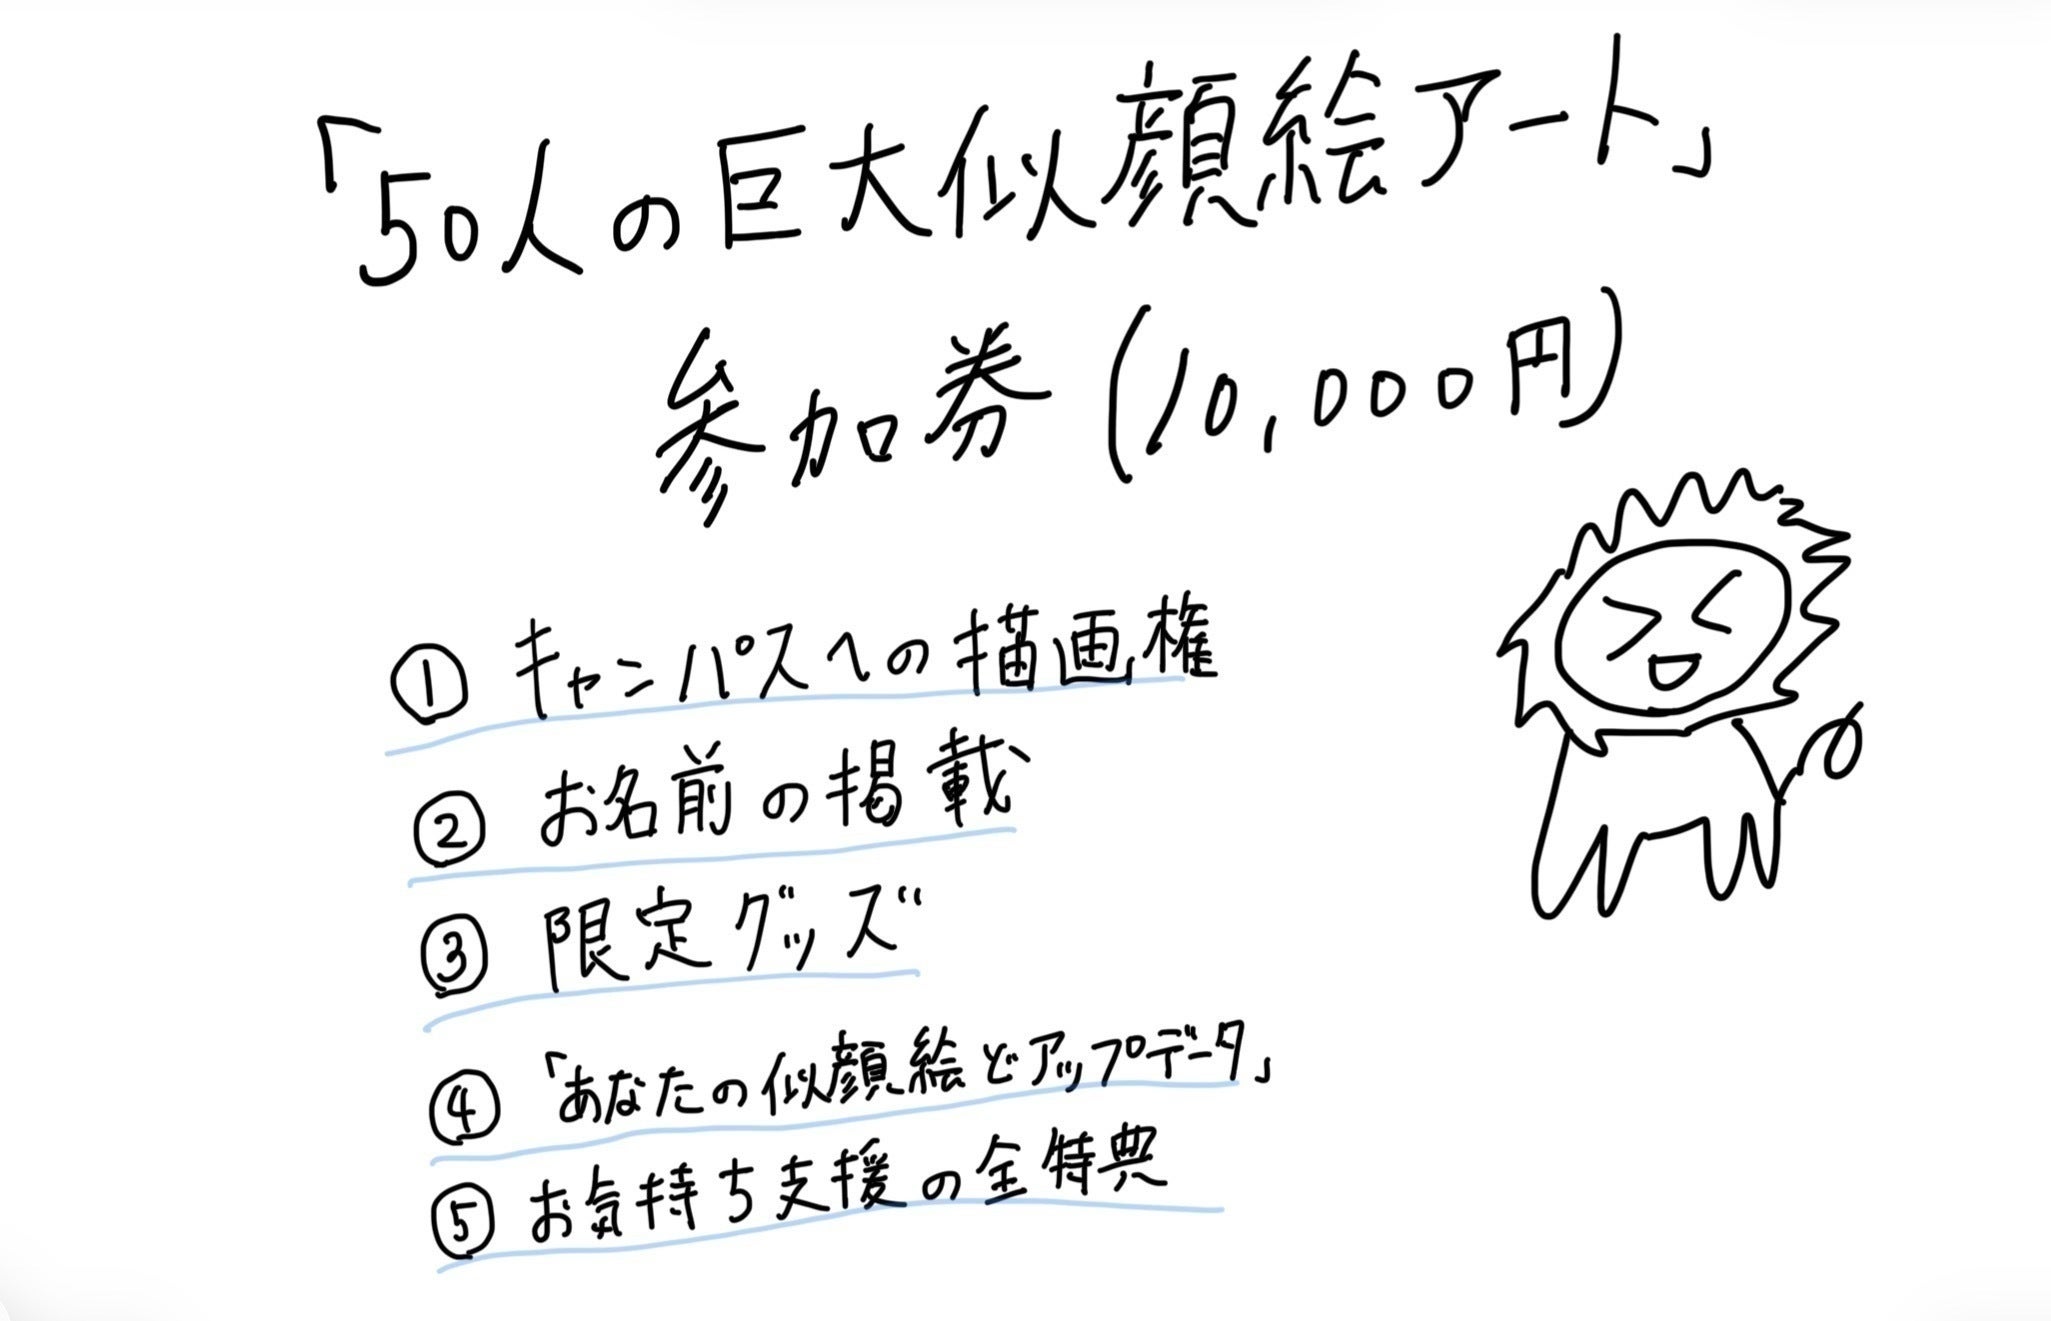 「50人の巨大似顔絵アート」
参加券(10,000円)
① キャンパスへの描画権
② お名前の掲載
③ 限定グッズ
④ 「あなたの似顔絵どアップデータ」
⑤ お気持ち支援の全特典